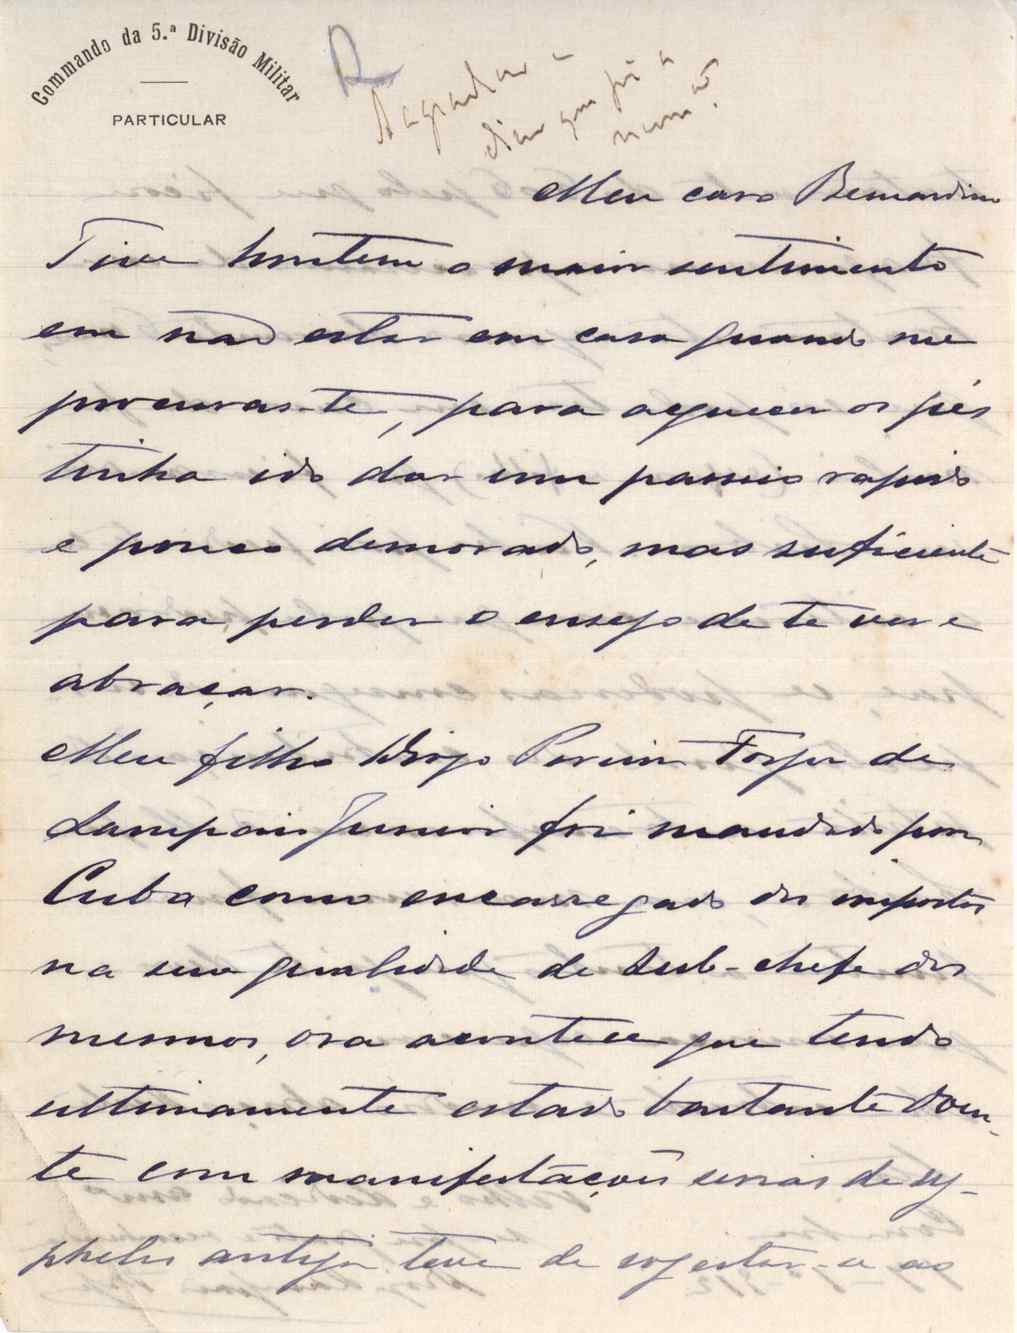 Commando da 5.ª Divisão Militar
PARTICULAR
R
Meu caro Bernardino
Tive hontem o maior sentimento
em não estar em casa quando me
procuras-te, para aquecer os pés
tinha ido dar um passeio rapido
e pouco demorado, mas suficiente
para perder o ensejo de te ver e
abraçar.
Meu filho Diogo Pereira Forjaz de
Sampaio Junior foi mandado para
Cuba como encarregado dos impostos
na sua qualidade de sub-chefe dos
mesmos, ora acontece que tendo
ultimamente estado bastante doen-
te com manifestações serias de sy-
philis antiga teve de sogeitar-se ao